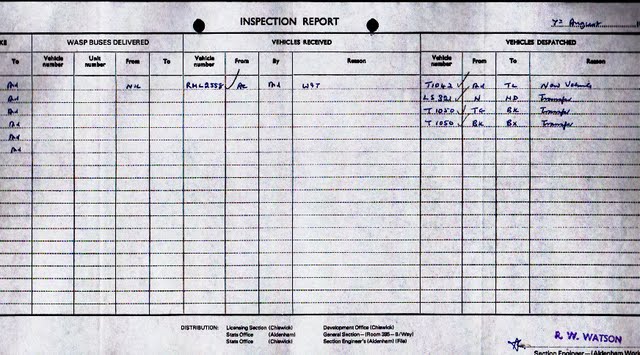 INSPECTION REPORT
August
KE WASP BUSES DELIVERED VEHICLES RECEIVED VEHICLES DESPATCHED
To Vehicle number Unit number From To Vehicle number From By Reason Vehicle number From To Reason
Ad NIL RML2558 AC Ad W97 T1042 Ad TL New Vehicle
Ad LS 321 N HD Transfer
Ad T1050 TC BK Transfer
Ad T1050 BK BX Transfer
Ad
Ad
DISTRIBUTION: Licensing Section (Chiswick) Development Office (Chiswick)
State Office (Aldenham) General Section—(Room 295—B/Way)
State Office (Chiswick) Section Engineer's (Aldenham) (File)
R. W. WATSON
Section Engineer—(Aldenham